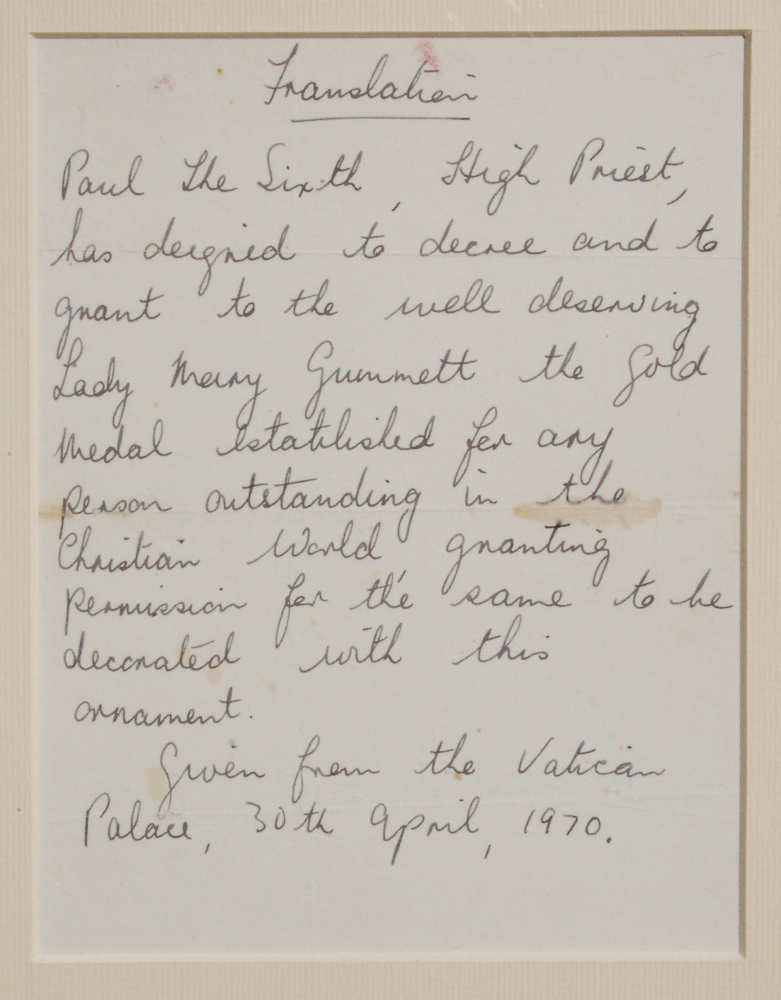 Translation
Paul the Sixth, High Priest,
has deigned to decree and to
grant to the well deserving
Lady Mary Gummett the Gold
Medal established for any
person outstanding in the
Christian World, granting
permission for the same to be
decorated with this
ornament.
Given from the Vatican
Palace, 30th April, 1970.